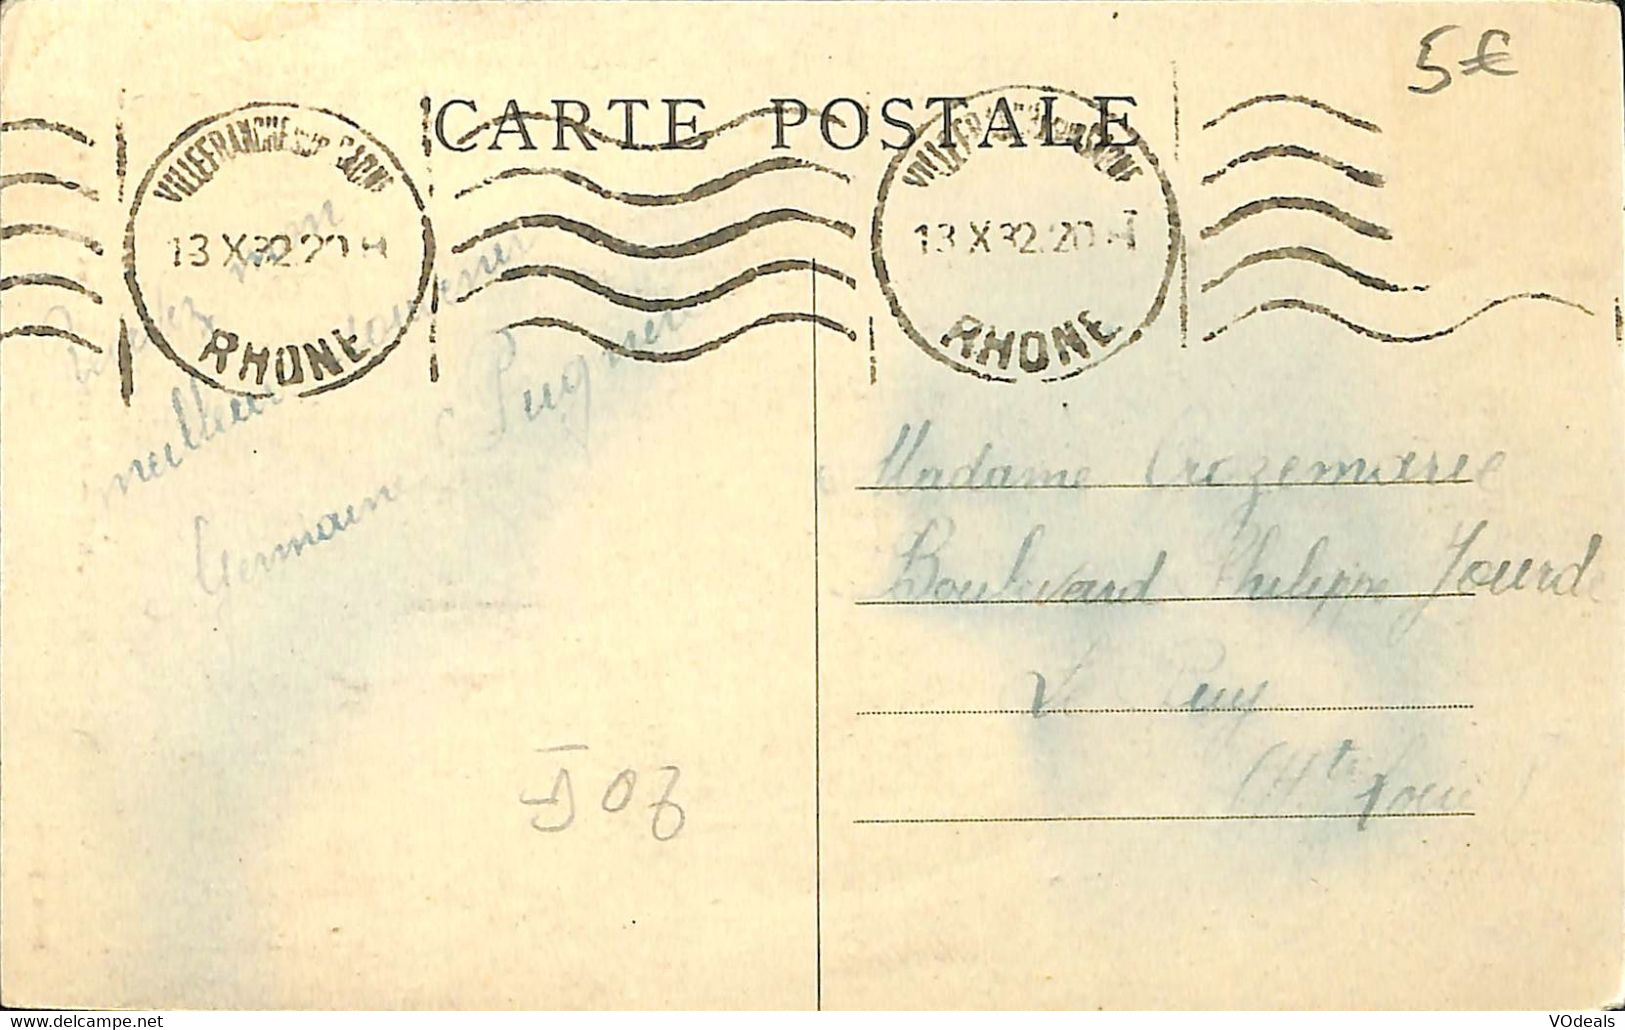 5€
CARTE POSTALE
VILLEFRANCHE SUR SAONE
13 X 32 20 H
RHONE
VILLEFRANCHE SUR SAONE
13 X 32 20 H
RHONE
mon
meilleur souvenir
Germaine
Madame Crozemarie
Boulevard Philippe Jourde
Le Puy
(Hte Loire)
delcampe.net
VOdeals